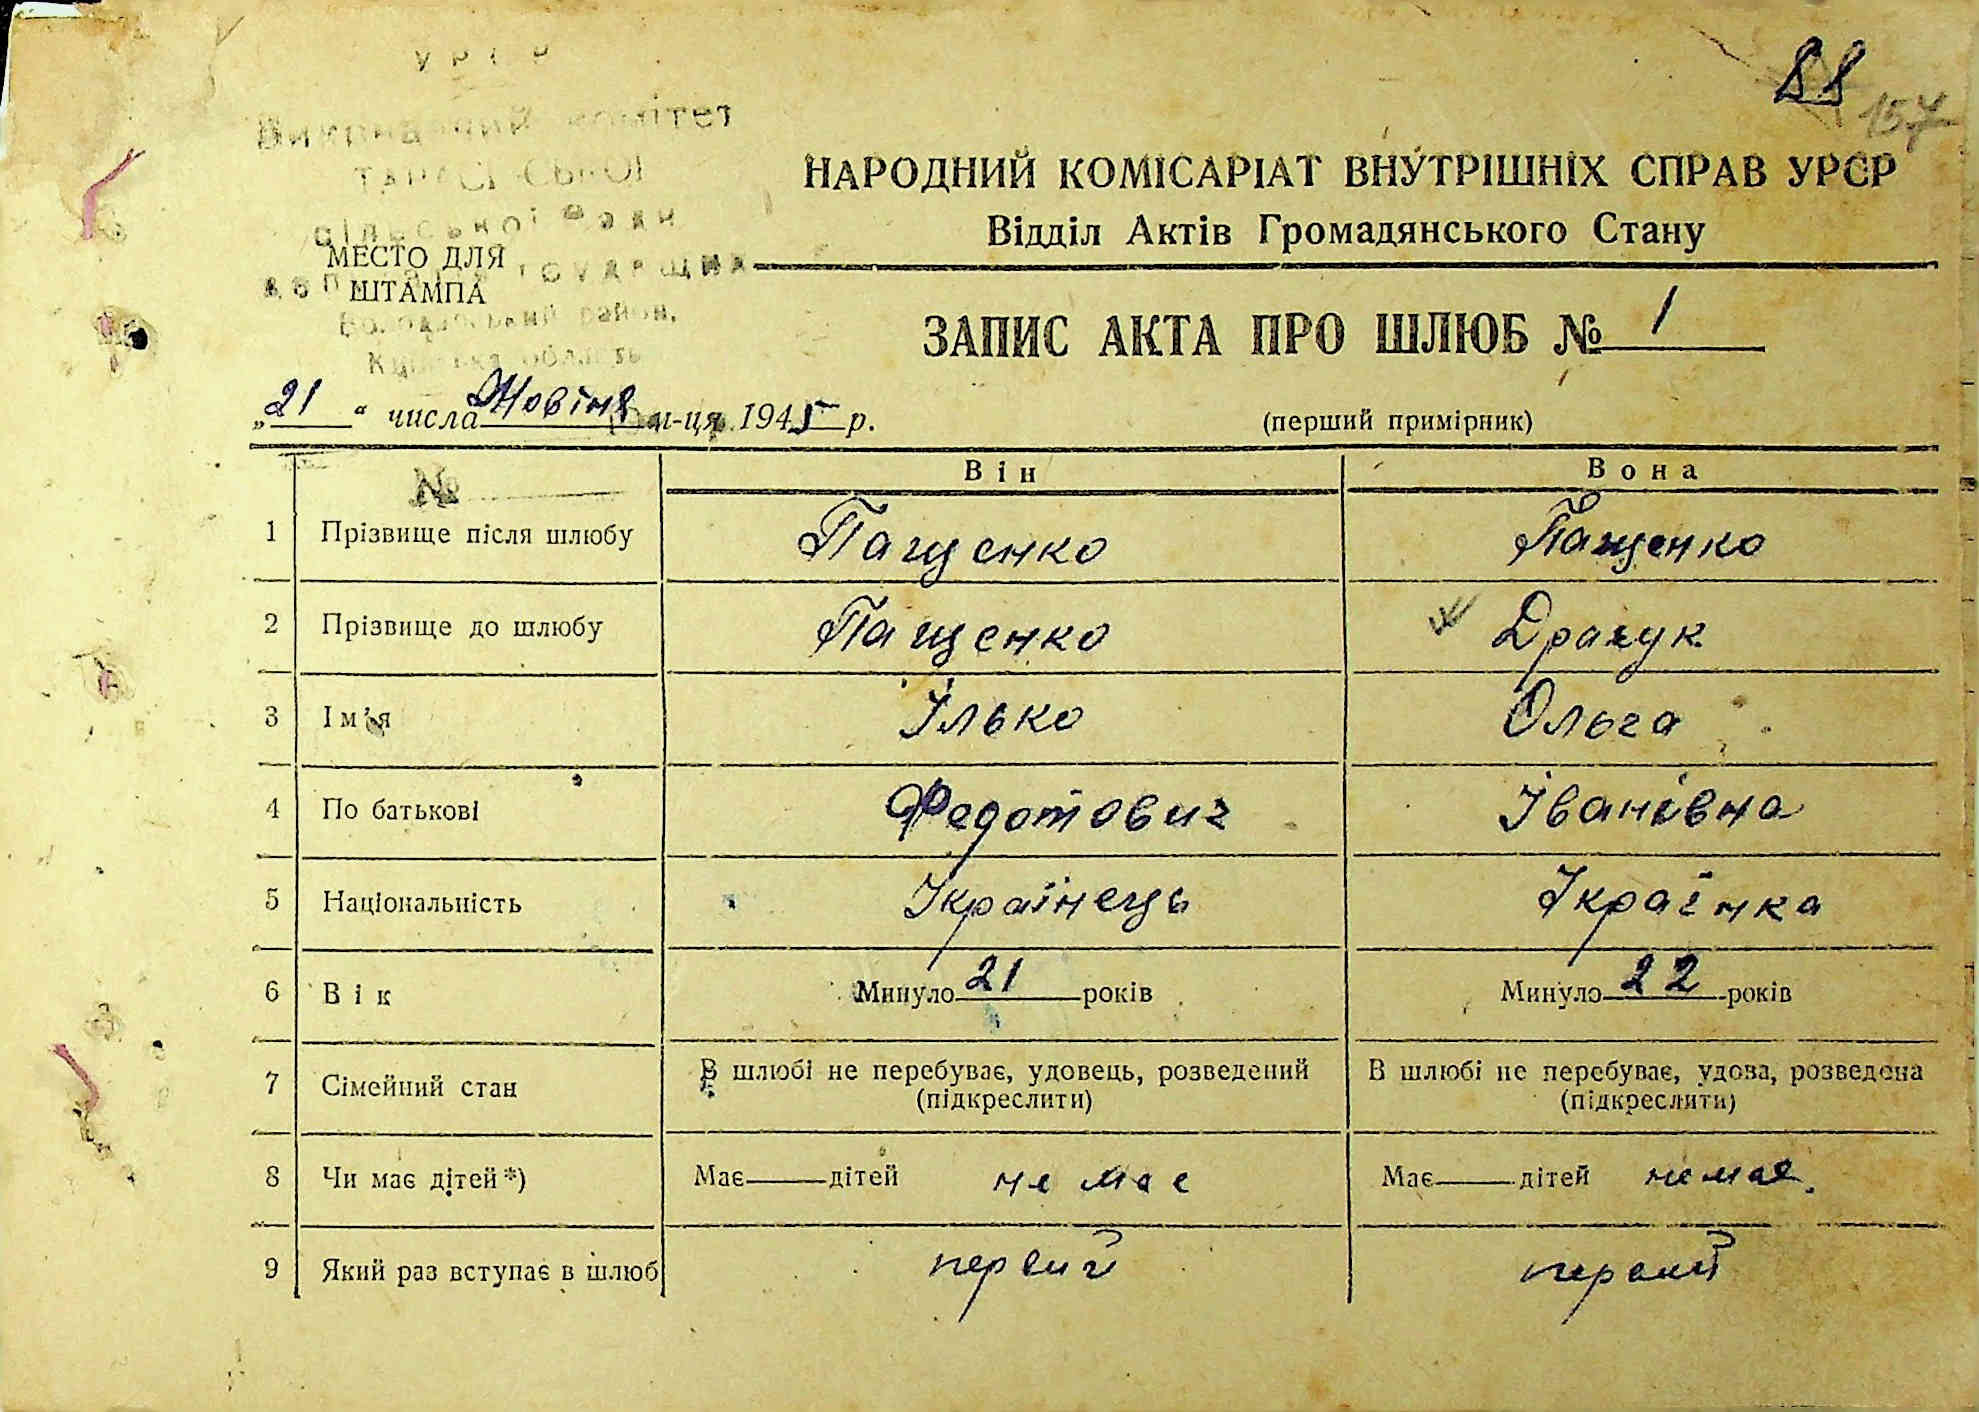 УРСР
88
157
Виконавчий комітет
сільської Ради
МЕСТО ДЛЯ
ШТАМПА
район,
область
НАРОДНИЙ КОМІСАРІАТ ВНУТРІШНІХ СПРАВ УРСР
Відділ Актів Громадянського Стану
ЗАПИС АКТА ПРО ШЛЮБ № 1
„21“ числа Жовтня м-ця 1945 р.
(перший примірник)
№
Він Вона
1 Прізвище після шлюбу Пащенко Пащенко
2 Прізвище до шлюбу Пащенко
3 Ім'я Ілько Ольга
4 По батькові Федотович Іванівна
5 Національність Українець Українка
6 Вік Минуло 21 років Минуло 22 років
7 Сімейний стан В шлюбі не перебуває, удовець, розведений В шлюбі не перебуває, удова, розведена
(підкреслити) (підкреслити)
8 Чи має дітей*) Має дітей не має Має дітей немає.
9 Який раз вступає в шлюб первий первий